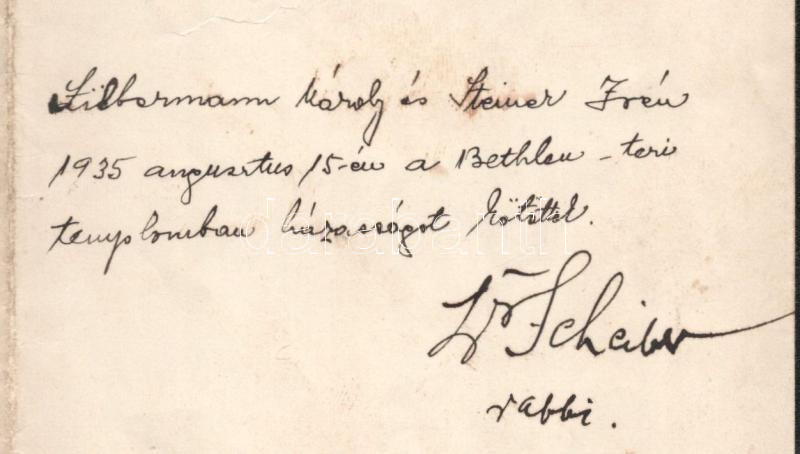 Silbermann Károly és Steiner Irén
1935 augusztus 15-én a Bethlen-téri
templomban házasságot kötöttek.
Dr Scheiber
rabbi.